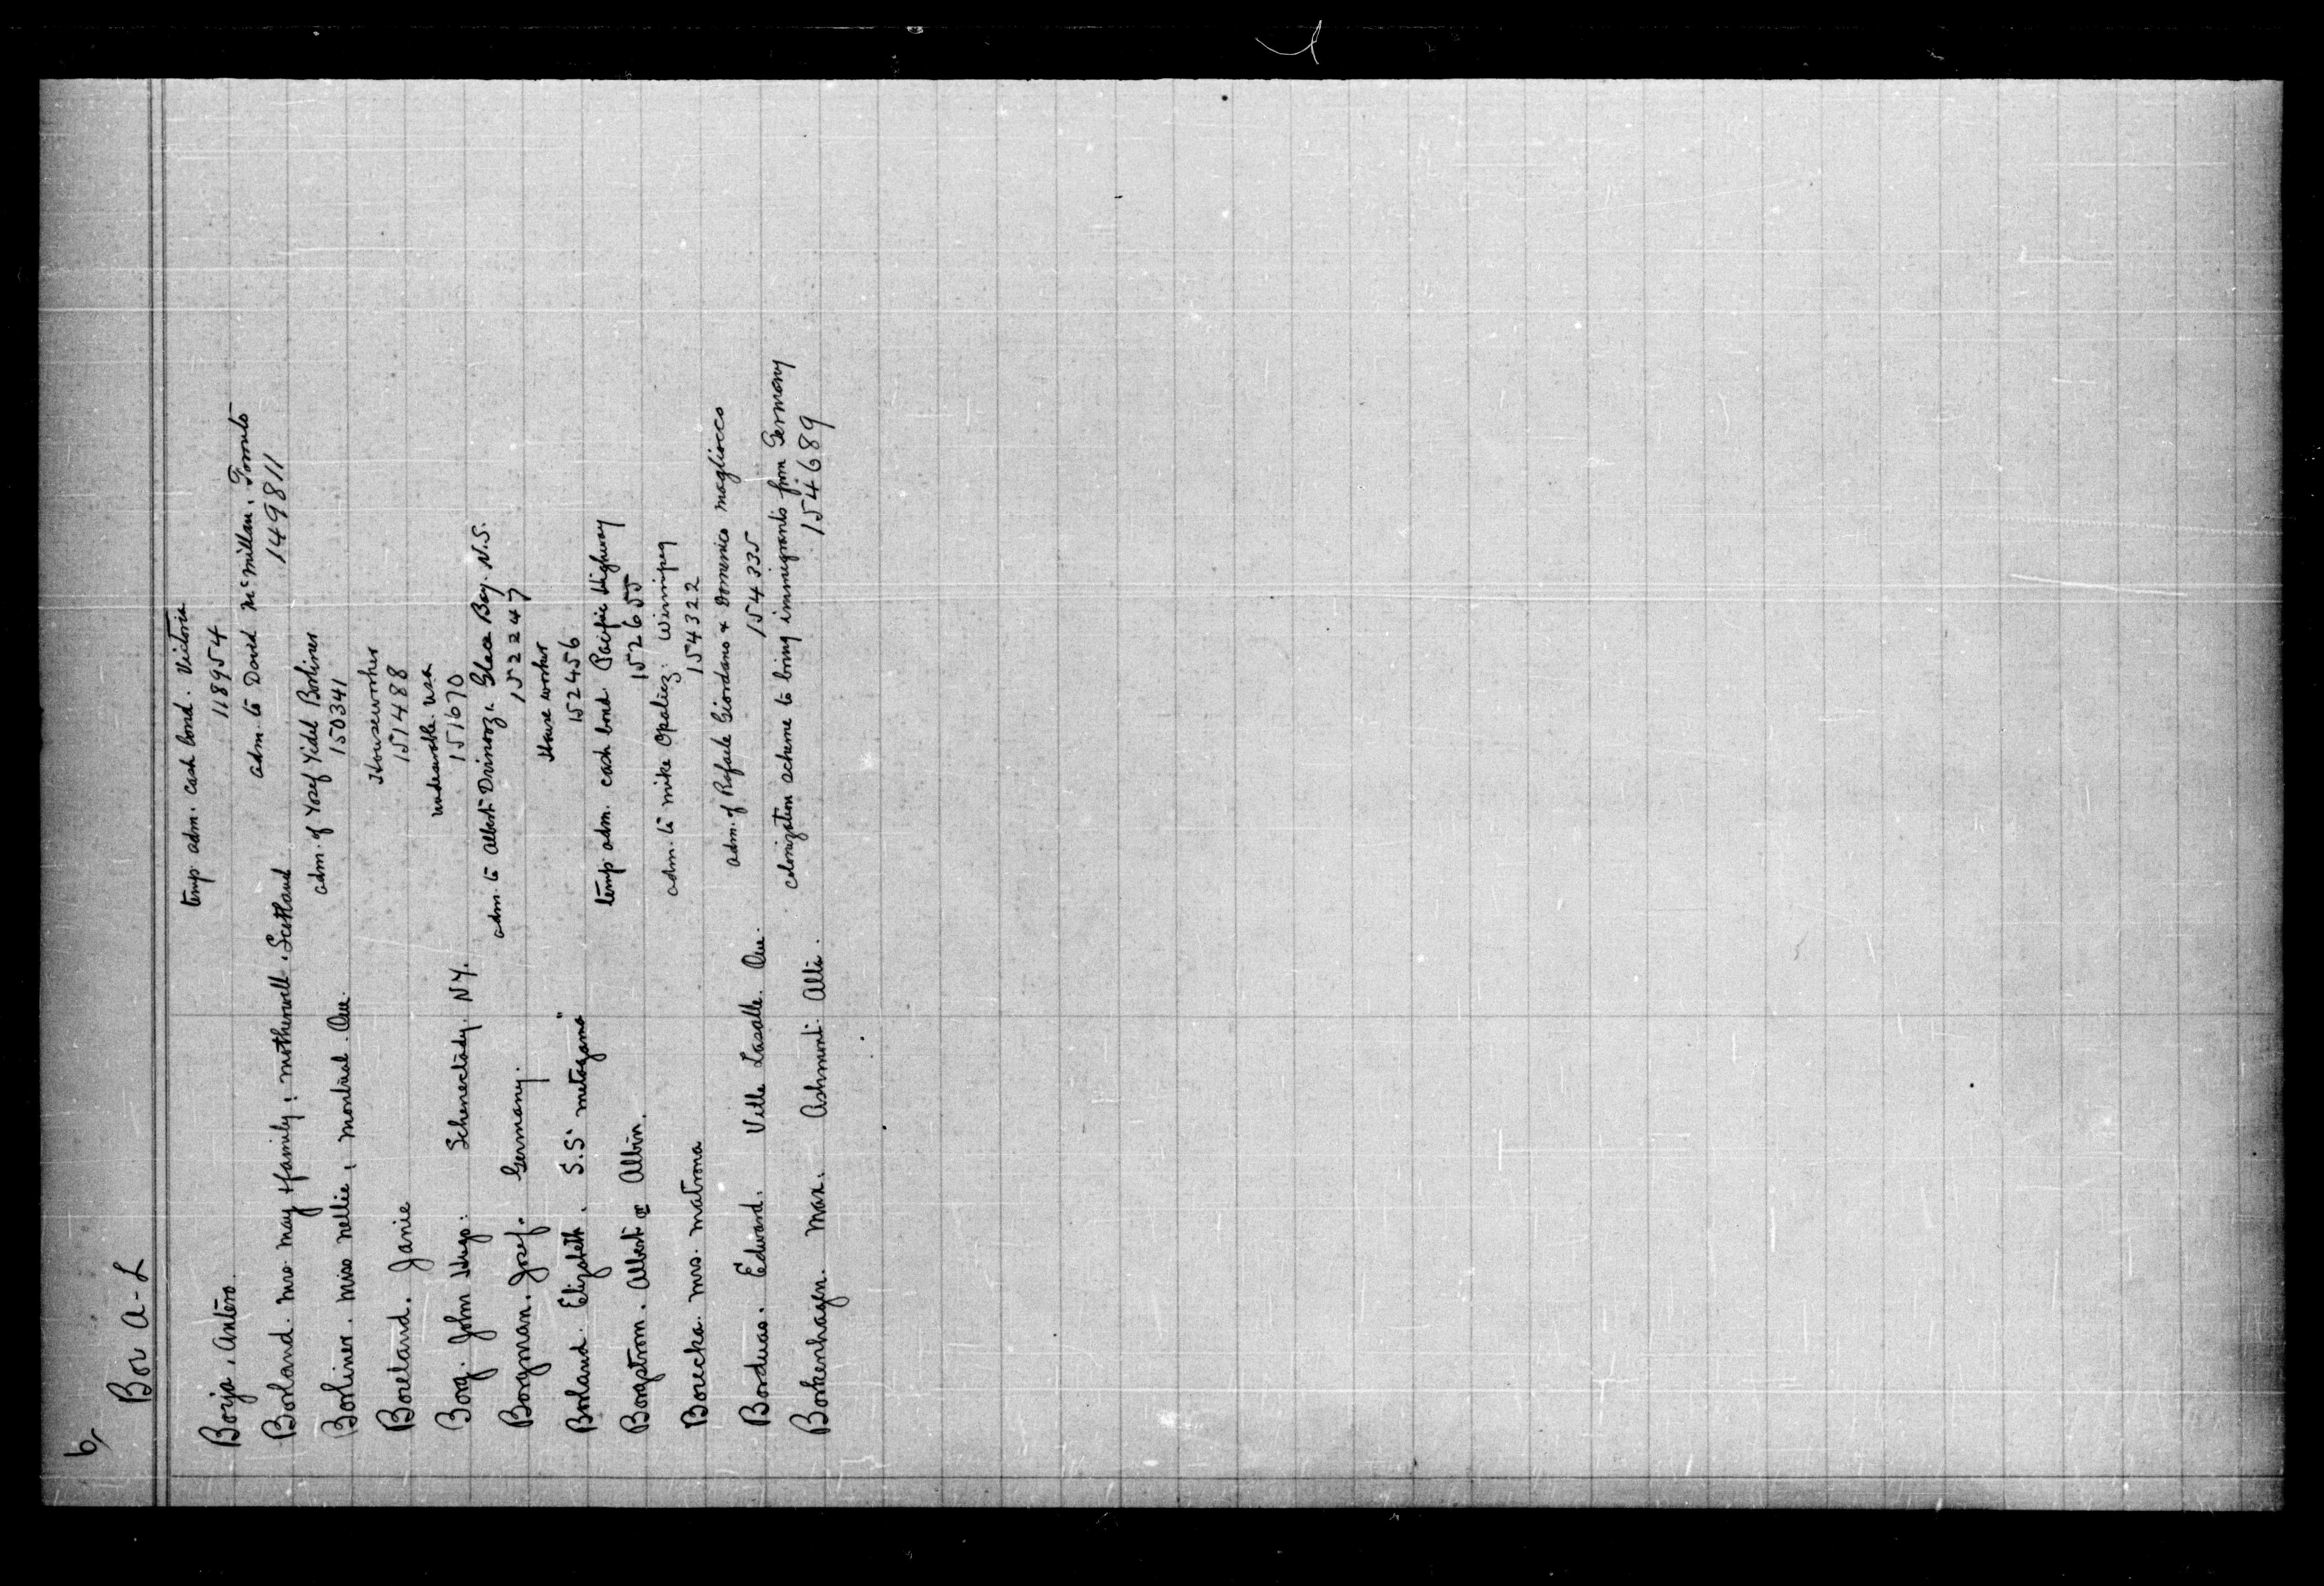 6,
Bor A-L
temp. adm. cash bond. Victoria
Borja, Antero. 118954
adm. to David McMillan, Toronto
Borland. Mrs. May & family, Motherwell. Scotland 149811
adm. of Yosef Yidel Borliner
Borliner. Miss Nellie, Montreal. Que. 150341
Houseworker
Boreland. Janie 151488
undesirable. USA
Borg. John Hugo. Schenectady. N.Y. 151670
adm. to Albert Glace Bay. N.S.
Borgman. Josef. Germany. 152247
House worker
Borland. Elizabeth. S.S. "Metagama" 152456
temp. adm. cash bond. Pacific Highway
Borgstrom. Albert or Albin. 152655
adm. to Mike Opalicz. Winnipeg
Borecka. Mrs. Matrona 154322
adm. of Rafaele Giordano & Domenico Magliocco
Borduas. Edward. Ville Lasalle. Que. 154335
colonization scheme to bring immigrants from Germany
Borkenhagen. Max. Ashmont. Alta. 154689